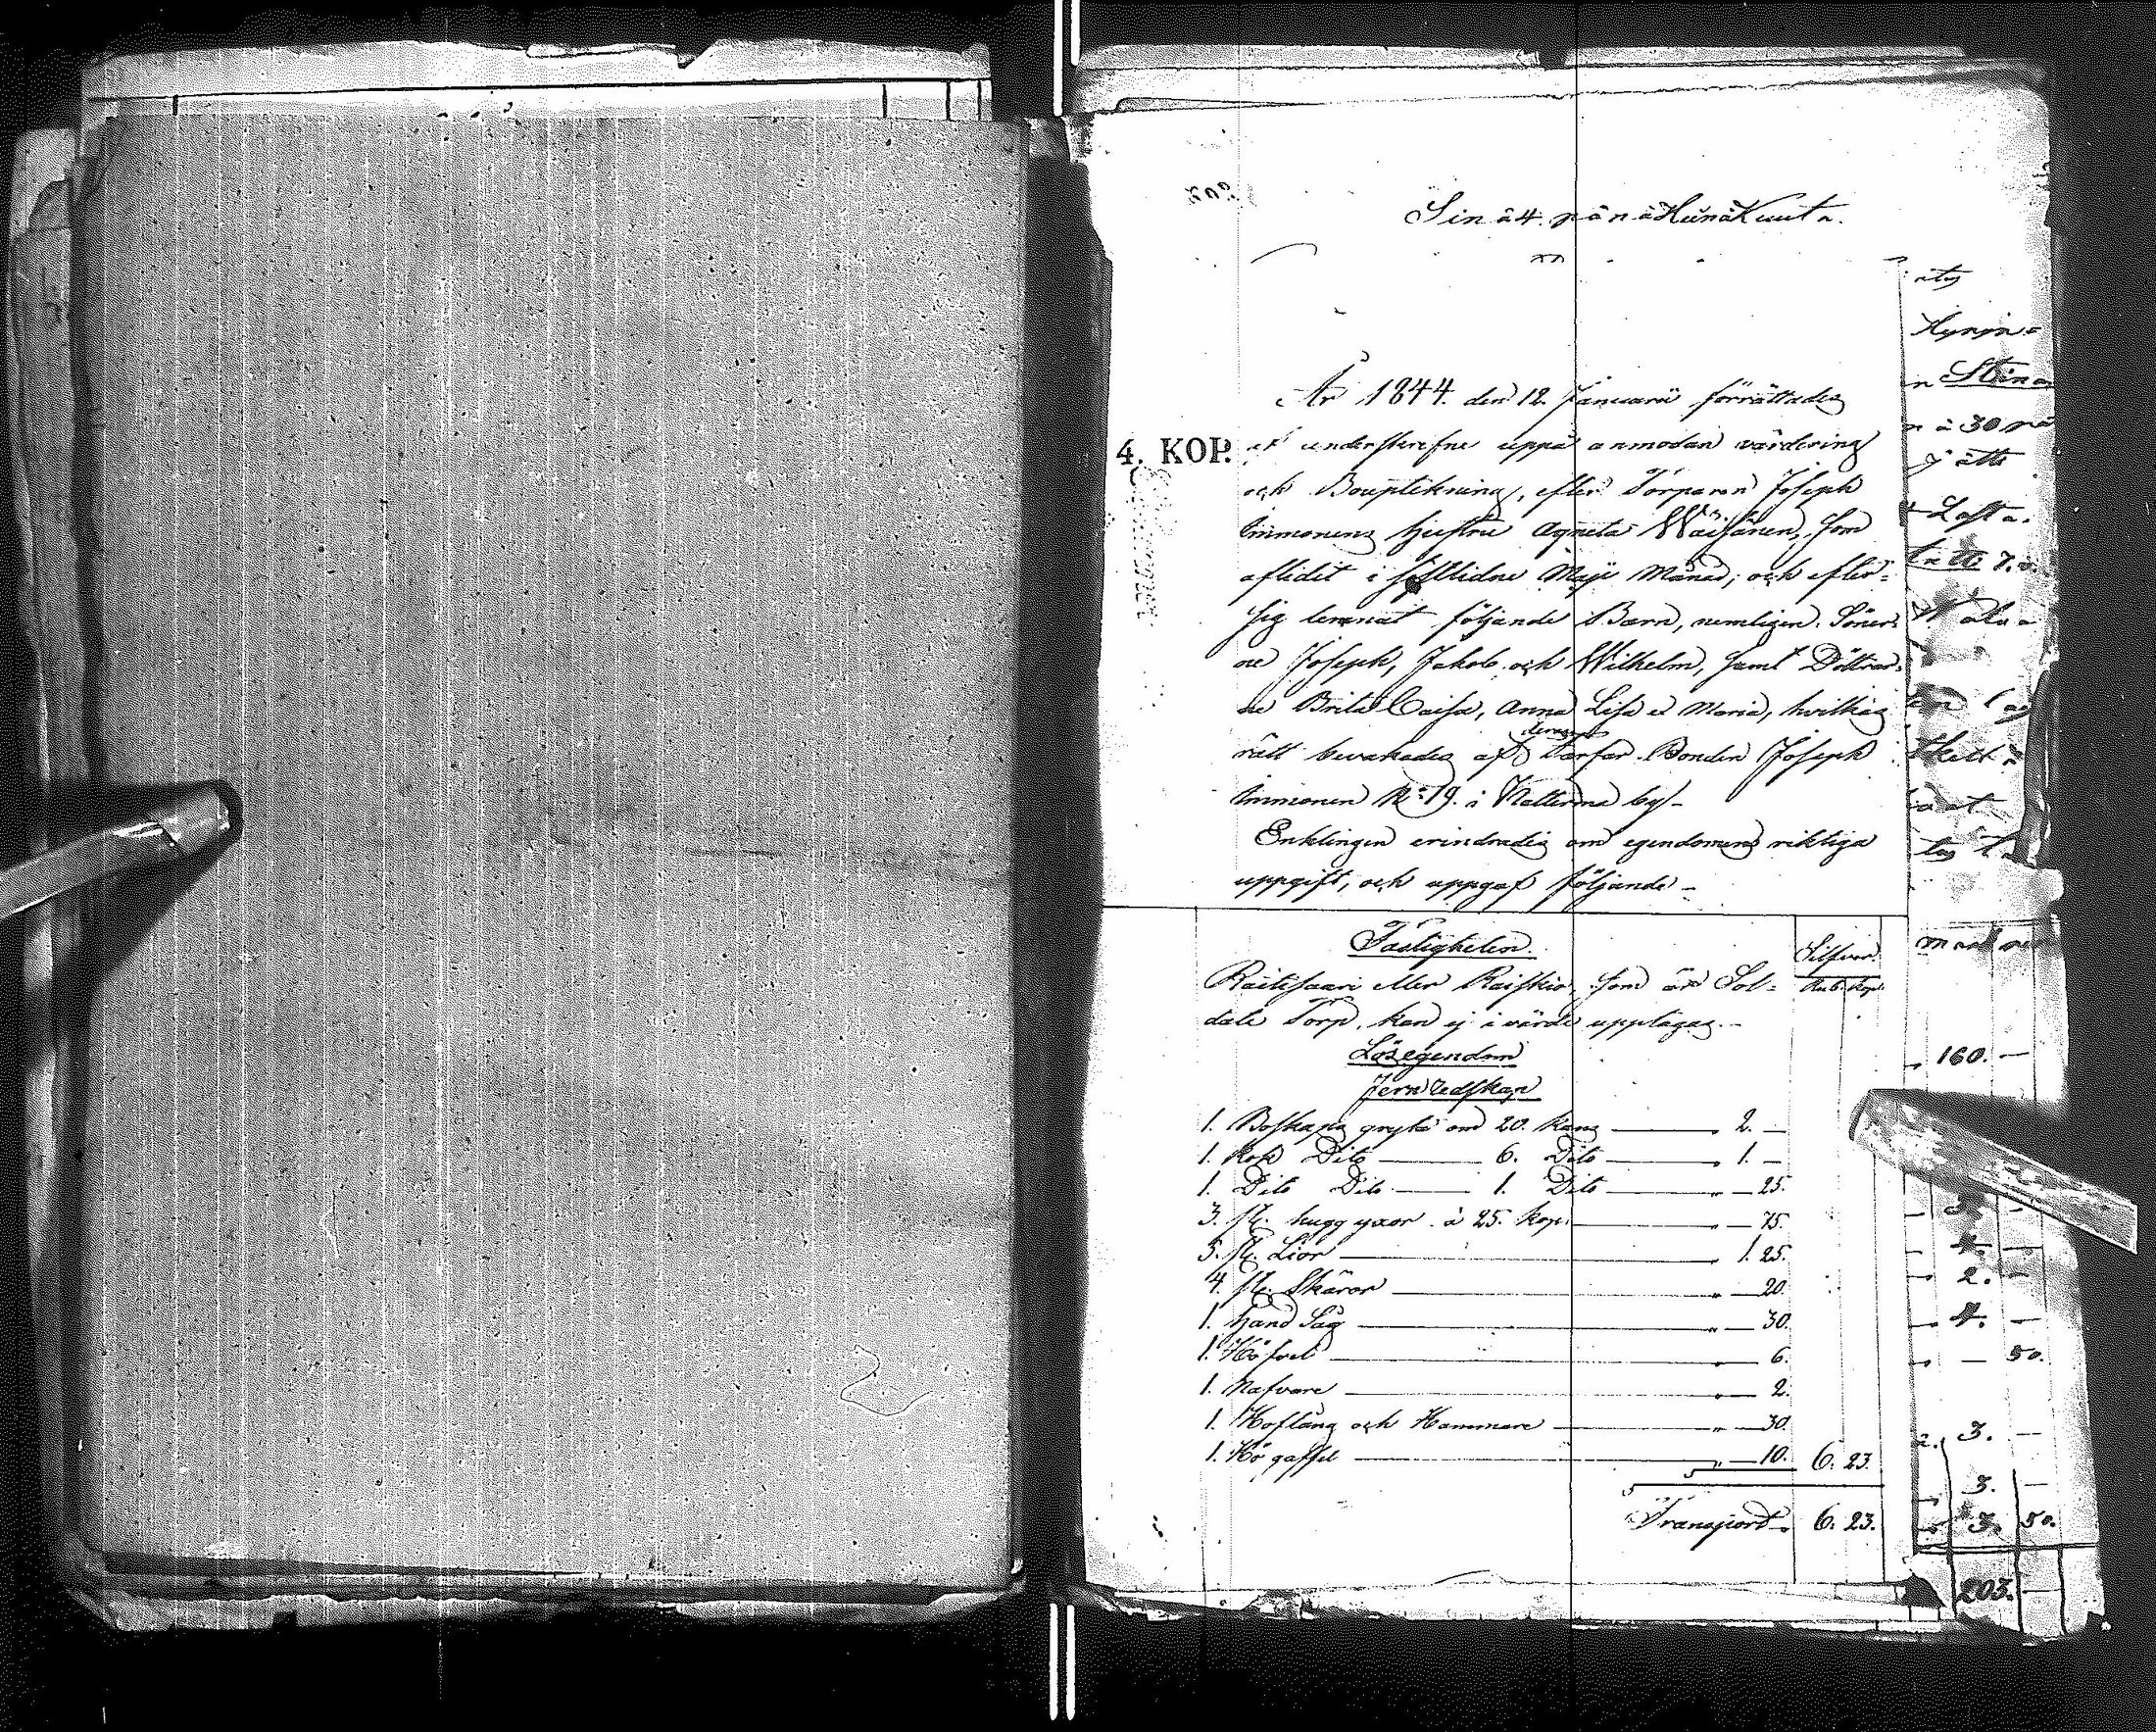 Sinä 4. pänä HuhtiKuut a.
År 1844. den 12. Januarii förrättades
4. KOP. af underskrefne uppå anmodan värdering
och Bouptekning, efter Torparen Joseph
Immonens hustru Agneta Wäisänen, som
aflidit i sistlidne Maji Månad; och efter-
sig lemnat följande Barn, nemligen Söner-
ne Joseph, Jakob och Wilhelm, samt Döttrar-
ne Brita Caisa, Anna Lisa et Maria, hvilkas
rätt bevakades af deras Farfar Bonden Joseph
Immonen No 19. i by-
Enklingen erindrades om egendomens riktiga
uppgift, och uppgaf följande -
Fastigheten.
Silfver
Rub. Kop.
Raitisaari eller Raiskio, som är Sol-
date Torp, kan ej i värde upptagas.-
Lösegendom
Jern redskap
1. Boskaps gryta om 20. kans — 2. —
1. Kop Dito — 6. Dito — 1. —
1. Dito Dito — 1. Dito — " — 25.
3. st. hugg yxor à 25. kop. — " — 75.
5. st. Lior — 1. 25.
4. st. Skäror — " — 20.
1. hand Såg — " — 30.
1. — " — 6.
1. Nafvare — " — 2.
1. Hoftång och Hammare — " — 30.
1. Hö gaffel — " — 10. 6. 23.
Transport. 6. 23.
Stina
à 30
160. —
2. —
4. —
— 50.
3. —
3. —
3. 50.
203. —